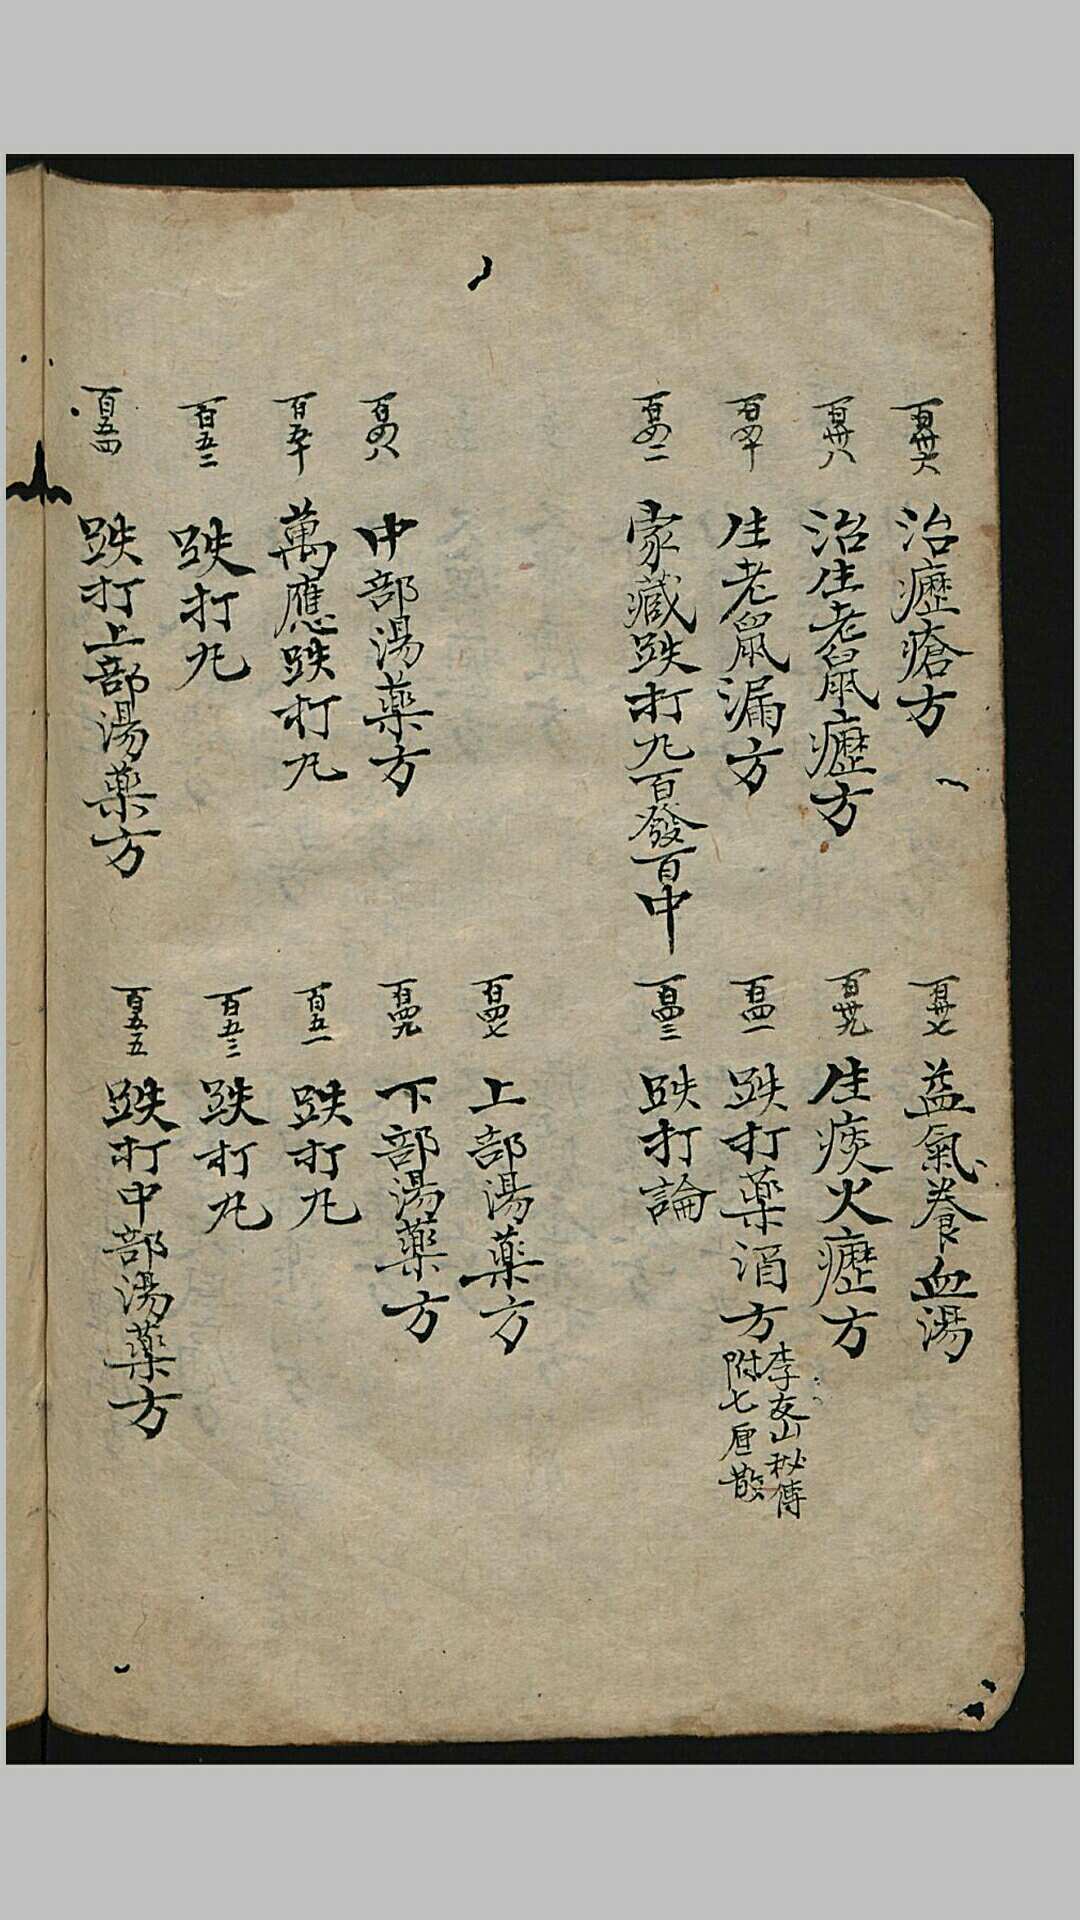 百卅六 治癧瘡方
百卅七 益氣養血湯
百卅八 治生老鼠癧方
百卅九 生痰火癧方
百四十 生老鼠漏方
百四一 跌打藥酒方 李友山秘傳 附七厘散
百四二 家藏跌打九百發百中
百四三 跌打論
百四七 上部湯藥方
百四八 中部湯藥方
百四九 下部湯藥方
百五十 萬應跌打九
百五一 跌打九
百五二 跌打九
百五三 跌打九
百五四 跌打上部湯藥方
百五五 跌打中部湯藥方